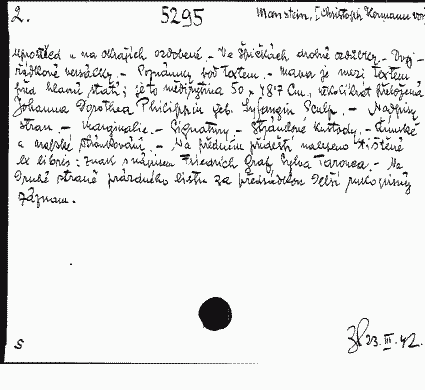 2. 5295 Manstein, [Christoph Hermann von
uprostřed a na okrajích ozdobené. – Ve špičkách drobné ozdůbky. – Dvoj-
řádkové versálky. – Poznámky pod textem. – mapa je mezi textem
před hlavní statí; je to mědirytina 50 x 48'7 cm, několikrát přeložená
Johanna Dorothea Philippin geb. Sysangin Sculp. – Nadpisy
stran. – Marginalie. – Signatury. – Stránkové kustody. – Římské
a arabské stránkování. – Na předním přídeští nalepeno tištěné
ex libris: znak s nápisem Friedrich Graf Sylva Tarouca. – Na
druhé straně prázdného listu za předsádkou delší rukopisný
záznam.
S 23. III. 42.